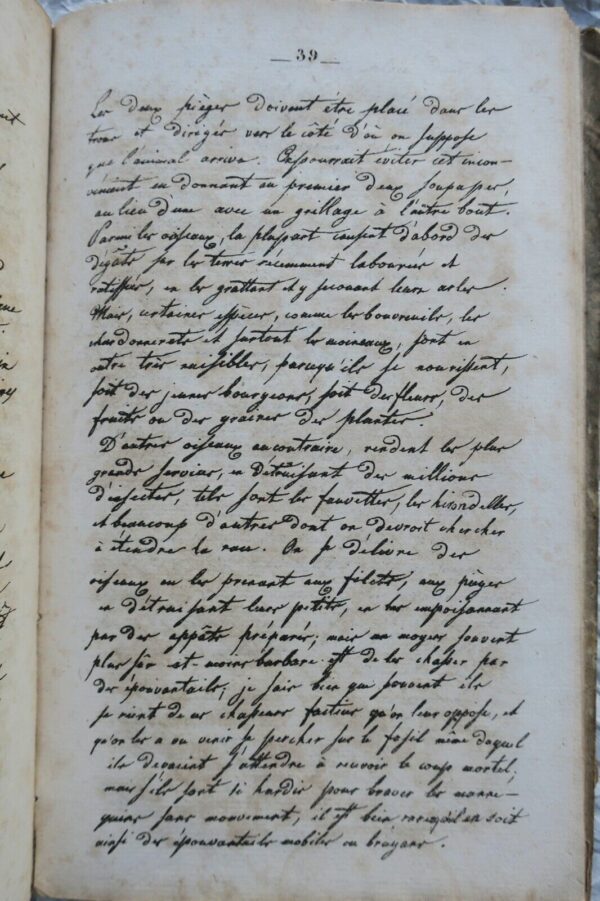 — 39 —
Les deux pièges doivent être placé dans les
trous et dirigés vers le côté d'où on suppose
que l'animal arriva. On pourrait éviter cet incon-
vénient en donnant au premier deux soupapes,
au lieu d'une avec un grillage à l'autre bout.
Parmi les oiseaux, la pluspart causent d'abord des
dégâts sur les terres récemment labourées et
ratissées, en les grattant et y secouant leurs ailes.
Mais, certaines espèces, comme les bouvreuils, les
chardonnerets et surtout les moineaux, sont en
outre très nuisibles, parcequ'ils se nourrissent,
soit des jeunes bourgeons, soit des fleurs, des
fruits ou des graines des plantes.
D'autres oiseaux au contraire, rendent les plus
grands services, en détruisant des millions
d'insectes, tels sont les fauvettes, les hirondelles,
et beaucoup d'autres dont on devroit chercher
à étendre la race. On se délivre des
oiseaux en les prenant aux filets, aux pièges
en détruisant leurs petits, en les empoisonnant
par des appâts préparés; mais un moyen souvent
plus sûr et moins barbare est de les chasser par
des épouvantails; je sais bien que souvent ils
se rient de ces chasseurs factices qu'on leur oppose, et
qu'on les a vu venir se percher sur le fusil même duquel
ils devaient s'attendre à recevoir le coup mortel.
mais s'ils sont si hardis pour braver les manne-
quins sans mouvement, il est bien rare qu'il en soit
ainsi des épouvantails mobiles ou bruyans.